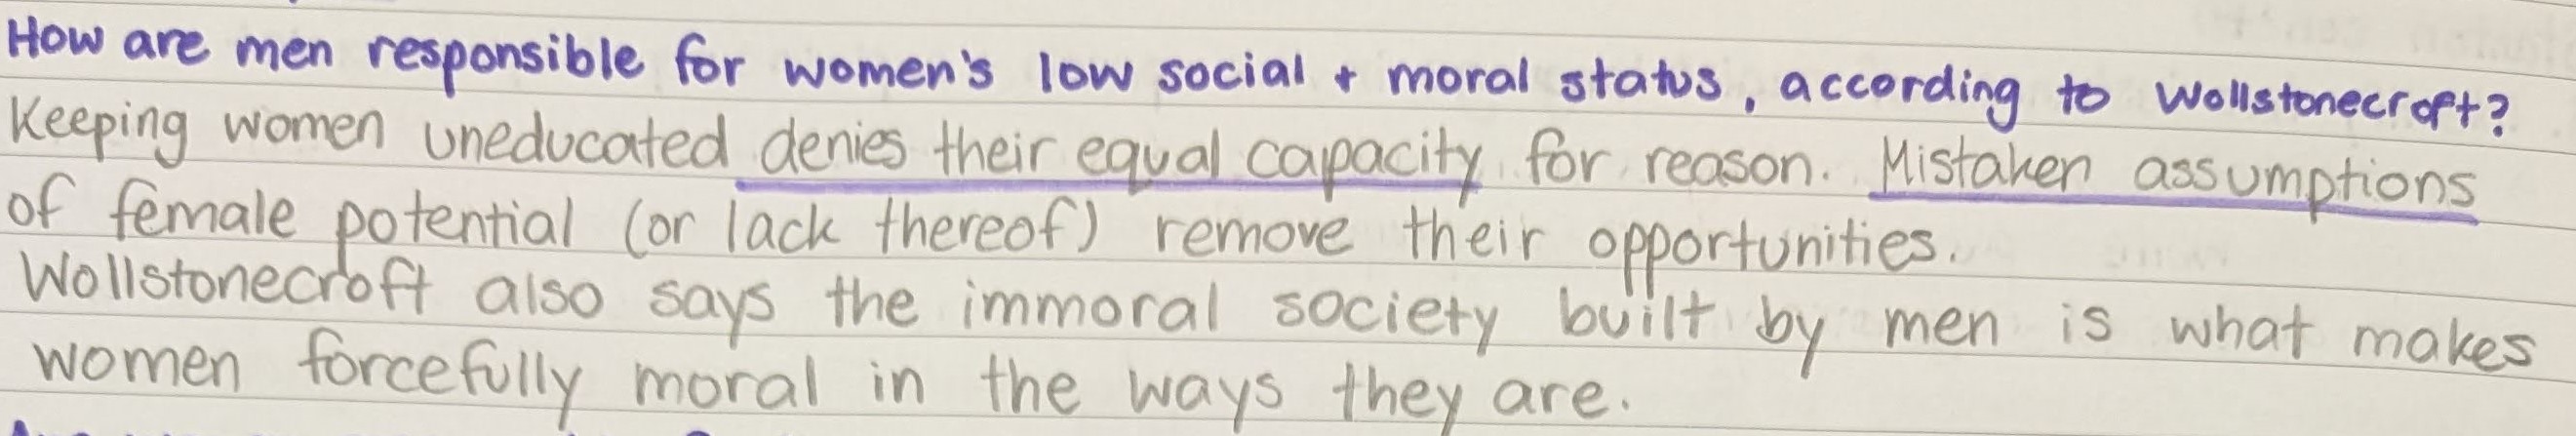 How are men responsible for women's low social + moral status, according to Wollstonecroft?
Keeping women uneducated denies their equal capacity for reason. Mistaken assumptions
of female potential (or lack thereof) remove their opportunities.
Wollstonecroft also says the immoral society built by men is what makes
women forcefully moral in the ways they are.